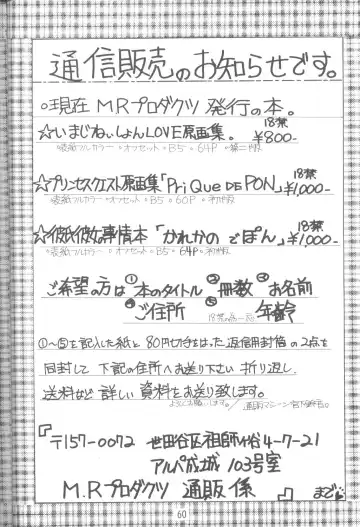 通信販売のお知らせです。
○現在 M.R プロダクツ 発行の本。
☆いまじねいしょんLOVE原画集。 18禁 ¥800-
表紙フルカラー・オフセット・B5・64P・第二版
☆プリンセスクエスト原画集「Pri Que DE PON」 18禁 ¥1,000-
表紙フルカラー・オフセット・B5・60P・初版
☆彼氏彼女事情本「かれかの でぽん」 18禁 ¥1,000-
表紙フルカラー・オフセット・B5・64P・初版
ご希望の方は ①本のタイトル ②冊数 ③お名前
④ご住所 ⑤年齢
18禁の為
①〜⑤を記入した紙と 80円切手をはった返信用封筒の2点を
同封して 下記の住所へお送り下さい 折り返し
送料など詳しい資料をお送り致します。
よろしくお願いします。／
『〒157-0072 世田谷区祖師谷4-7-21
アルペ成城 103号室
M.Rプロダクツ 通販係 』まで
60